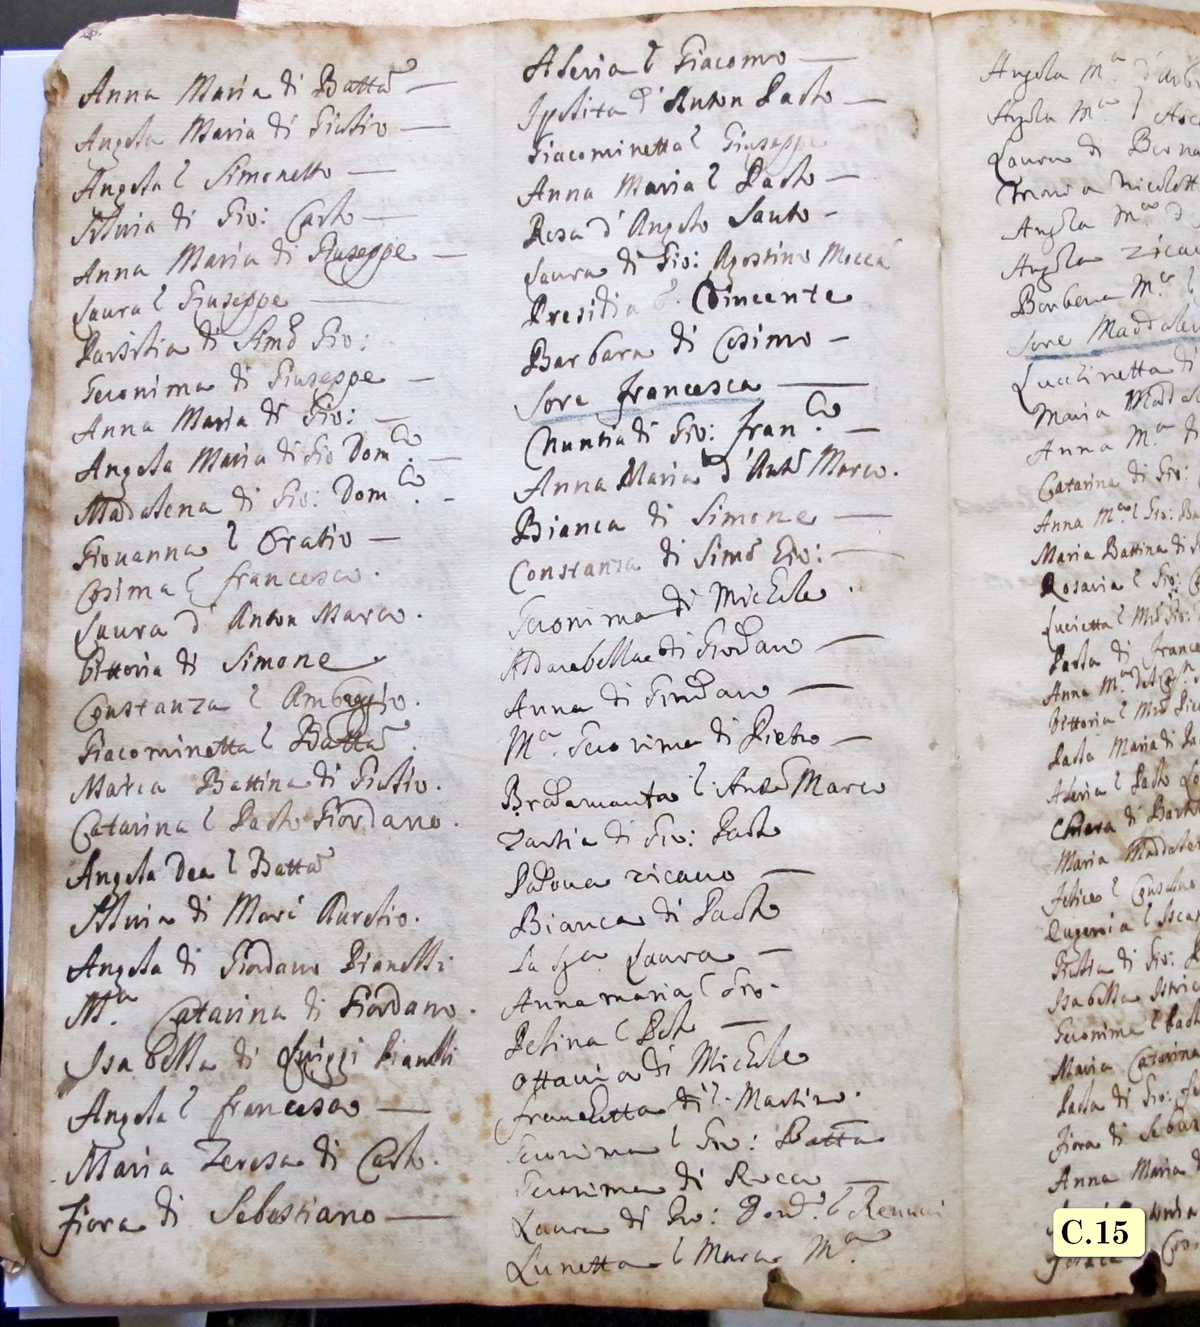 Anna Maria di Batta
Angela Maria di Giulio
Angela l Simonetto
Silvia di Gio: Carlo
Anna Maria di Giuseppe
Laura l Giuseppe
di Simo Gio:
Geronima di Giuseppe
Anna Maria di Gio:
Angela Maria di Gio Dom.co
Madalena di Gio: Dom.co
Giovanna l Oratio
Cosima l francesco.
Laura d' Anton Marco.
Vittoria di Simone
Constanza l Ambroggio.
Giacominetta l Batta.
Maria Battina di Giulio.
Catarina l Paolo Giordano.
Angela Dea l Batta
Silvia di Marc Aurelio.
Angela di Giordano Pianelli
M.a Catarina di Giordano.
Isabella di Luiggi Pianelli
Angela l francesco
Maria Teresa di Carlo.
Fiora di Sebastiano
Aleria l Giacomo
Ipolita d' Anton Paolo
Giacominetta l Giuseppe
Anna Maria l Paolo
Rosa d' Angelo Santo
Laura di Gio: Agostino Mocca
Presidia Vincente
Barbara di Cosimo
Sore francesca
Nuntia di Gio: fran.co
Anna Maria d'Anto Marco.
Bianca di Simone
Constanza di Simo Gio:
Geronima di Michele
di Giordano
Anna di Giordano
M.a Geronima di Pietro
Bradamanta l Anto Marco
di Gio: Paolo
Padova Zicavo
Bianca di Paolo
La Sga Laura
Anna maria l Gio.
Pelina l Polo
Ottavia di Michele
francetta di l Martino.
Geronima l Gio: Batta
Geronima di Rocco
Laura di Gio: l Renucci
Lunetta l Marc M.a
Angela M.a
Angela M.a l
Laura di
Maria Nicolett
Angela M.a d
Angela Zicav
Barbera M.a l
Sore Maddalen
Lucchinetta di
Maria Madda
Anna M.a di
Catarina di Gio:
Anna M.a l Gio: Ba
Maria Battina di
Rosaria l Gio:
Lucietta l
Paola di France
Anna M.a
Vittoria l
Paola Maria di Pa
Aleria l Paolo
Chiara di Barto
Maria Maddale
Felice l Consalvo
Eugenia l
di Gio: P
Isabella Istria
Geronima l Paolo
Maria Catarina
Paola di Gio:
Fiora di Sebast
Anna Maria d
C.15